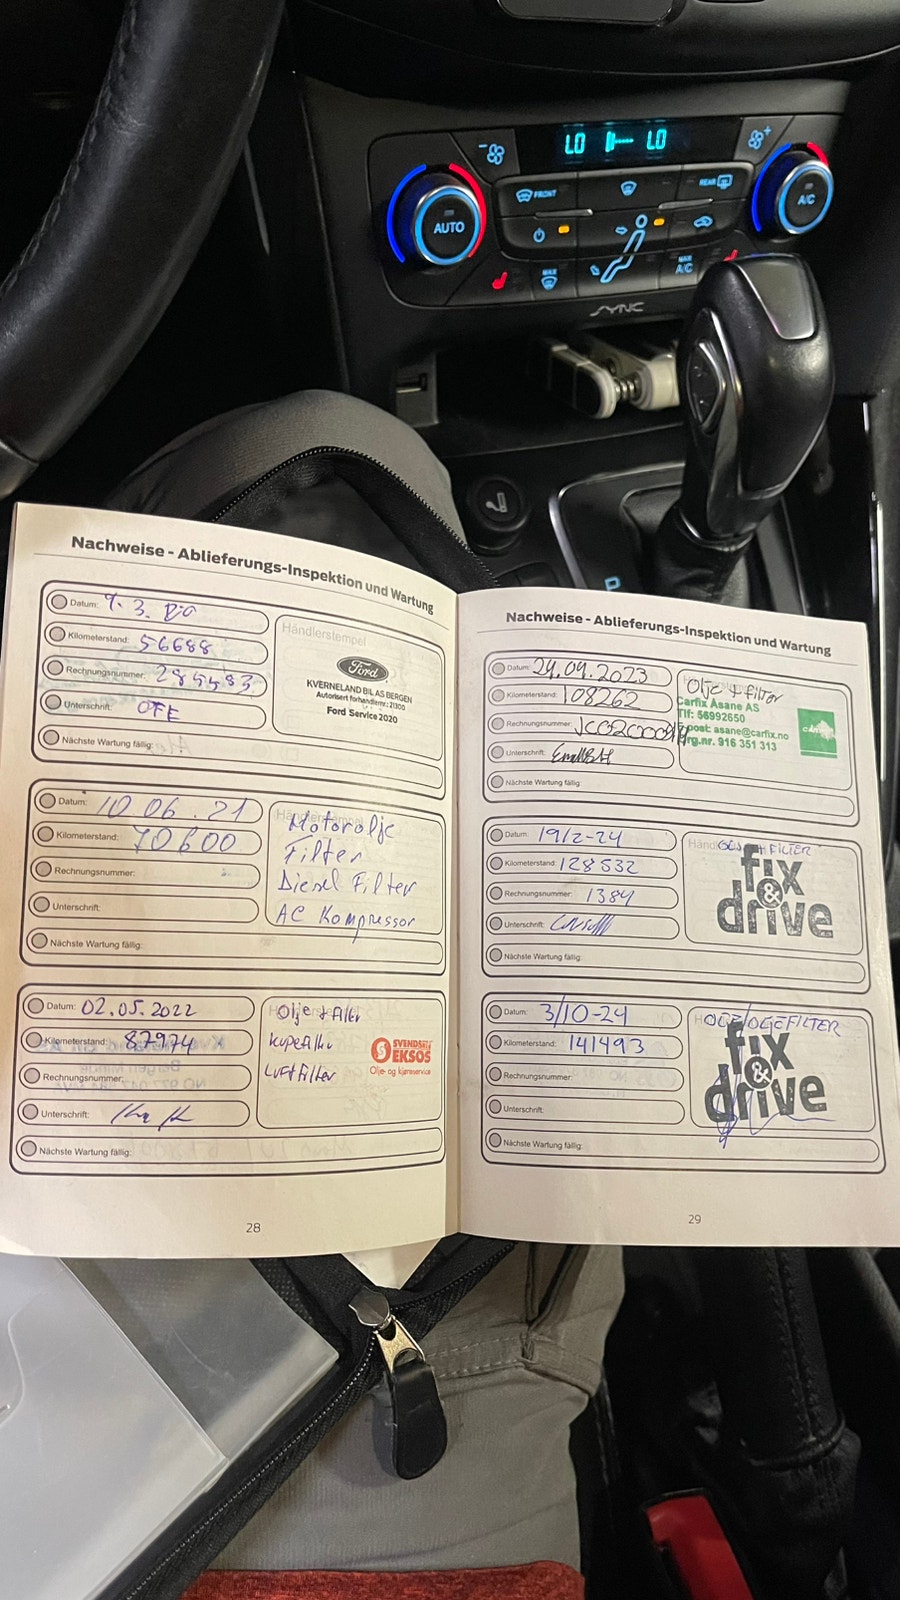 LO LO
FRONT
REAR
AUTO
A/C
MAX
MAX
A/C
SYNC
P
Nachweise - Ablieferungs-Inspektion und Wartung
Datum: 9. 3. 20
Kilometerstand: 56688
Rechnungsnummer: 285483
Unterschrift: OTE
Nächste Wartung fällig:
Händlerstempel
Ford
KVERNELAND BIL AS BERGEN
Autorisert forhandlernr.: 21300
Ford Service 2020
Datum: 10.06.21
Kilometerstand: 70600
Rechnungsnummer:
Unterschrift:
Nächste Wartung fällig:
Motorolje
Filter
Diesel Filter
AC Kompressor
Datum: 02.05.2022
Kilometerstand: 87974
Rechnungsnummer:
Unterschrift:
Nächste Wartung fällig:
Olje + filter
Kupefilter
Luftfilter
SVENDSEN
EKSOS
Olje- og kjøreservice
28
Nachweise - Ablieferungs-Inspektion und Wartung
Datum: 24.09.2023
Kilometerstand: 108262
Rechnungsnummer:
Unterschrift:
Nächste Wartung fällig:
Olje + filter
Carfix Åsane AS
Tlf: 56992650
E-post: asane@carfix.no
Org.nr. 916 351 313
Datum: 19/2-24
Kilometerstand: 128532
Rechnungsnummer: 1384
Unterschrift:
Nächste Wartung fällig:
OLJE + FILTER
fix
&
drive
Datum: 3/10-24
Kilometerstand: 141493
Rechnungsnummer:
Unterschrift:
Nächste Wartung fällig:
OLJE/OLJEFILTER
fix
&
drive
29